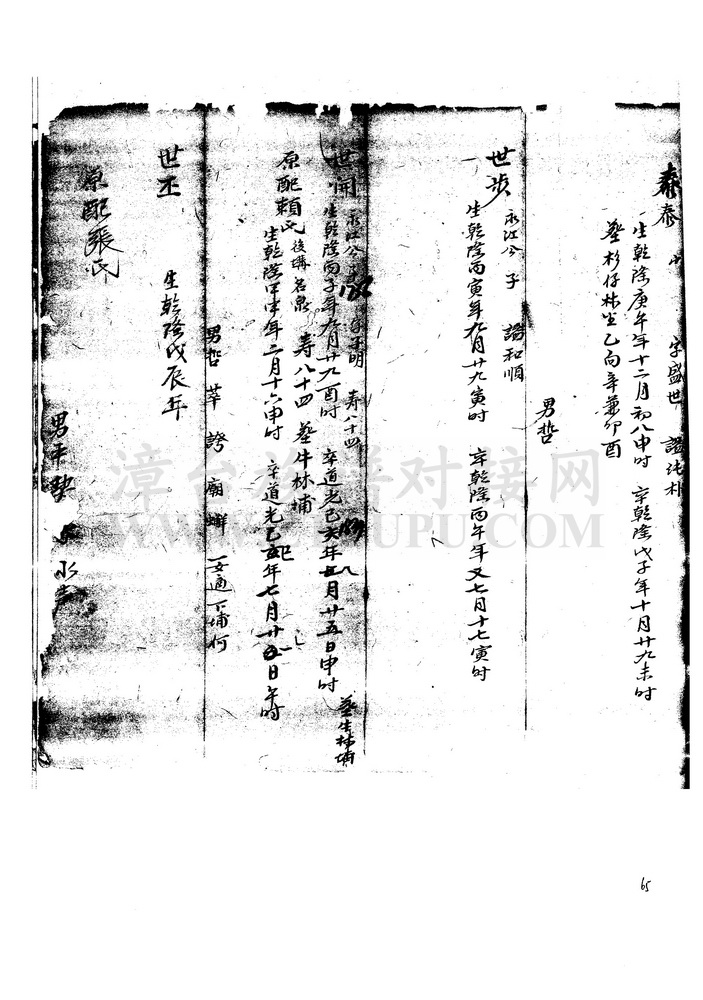 泰 字盛世 諡純朴
生乾隆庚午年十二月初八申时 卒乾隆戊子年十月廿九未时
葬杉仔林坐乙向辛兼卯酉
男哲
世步 永江公子 諡和順
生乾隆丙寅年九月廿九寅时 卒乾隆丙午年又七月十七寅时
世開 永江公子 字子明 寿八十四
生乾隆丙子年九月廿九酉时 卒道光己亥年五月廿五日申时 葬牛林埔
原配賴氏 後溝名泉 寿八十四 葬牛林埔
生乾隆甲申年二月十六申时 卒道光己亥年七月廿五日午时
男哲 莘 誇 廟 蟬 一女適下埔何
世丕 生乾隆戊辰年
原配張氏
男平 永
漳台族谱对接网
65